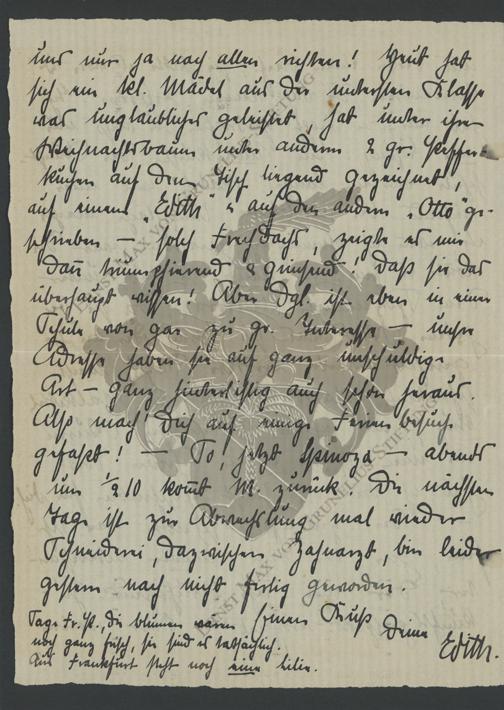 und nur ja nach allen richten! Heut hat
sich ein kl. Mädel aus der untersten Klasse
was unglaubliches geleistet, hat unter ihren
Weihnachtsbaum unter anderm 2 gr. Pfeffer-
kuchen auf dem Tisch liegend gezeichnet,
auf einem "Edith" & auf den andern "Otto" ge-
schrieben — solch Frechdachs, zeigte es mir
dann triumphierend & grinsend. Daß sie das
überhaupt wissen! Aber dgl. ist eben in einer
Schule von gar zu gr. Interesse — unsre
Adresse haben sie auf ganz unschuldige
Art — ganz hinterlistig auch schon heraus.
Also mach' Dich auf einige Ferienbesuche
gefaßt! — So, jetzt Spinoza — abends
um ½10 kommt M. zurück. Die nächsten
Tage ist zur Abwechslung mal wieder
Schneiderei, dazwischen Zahnarzt, bin leider
gestern noch nicht fertig geworden.
Einen Kuß Deine
Edith.
Sage Fr. die Blumen waren
noch ganz frisch, sie sind es tatsächlich.
Aus Frankfurt steht noch eine Lilie.